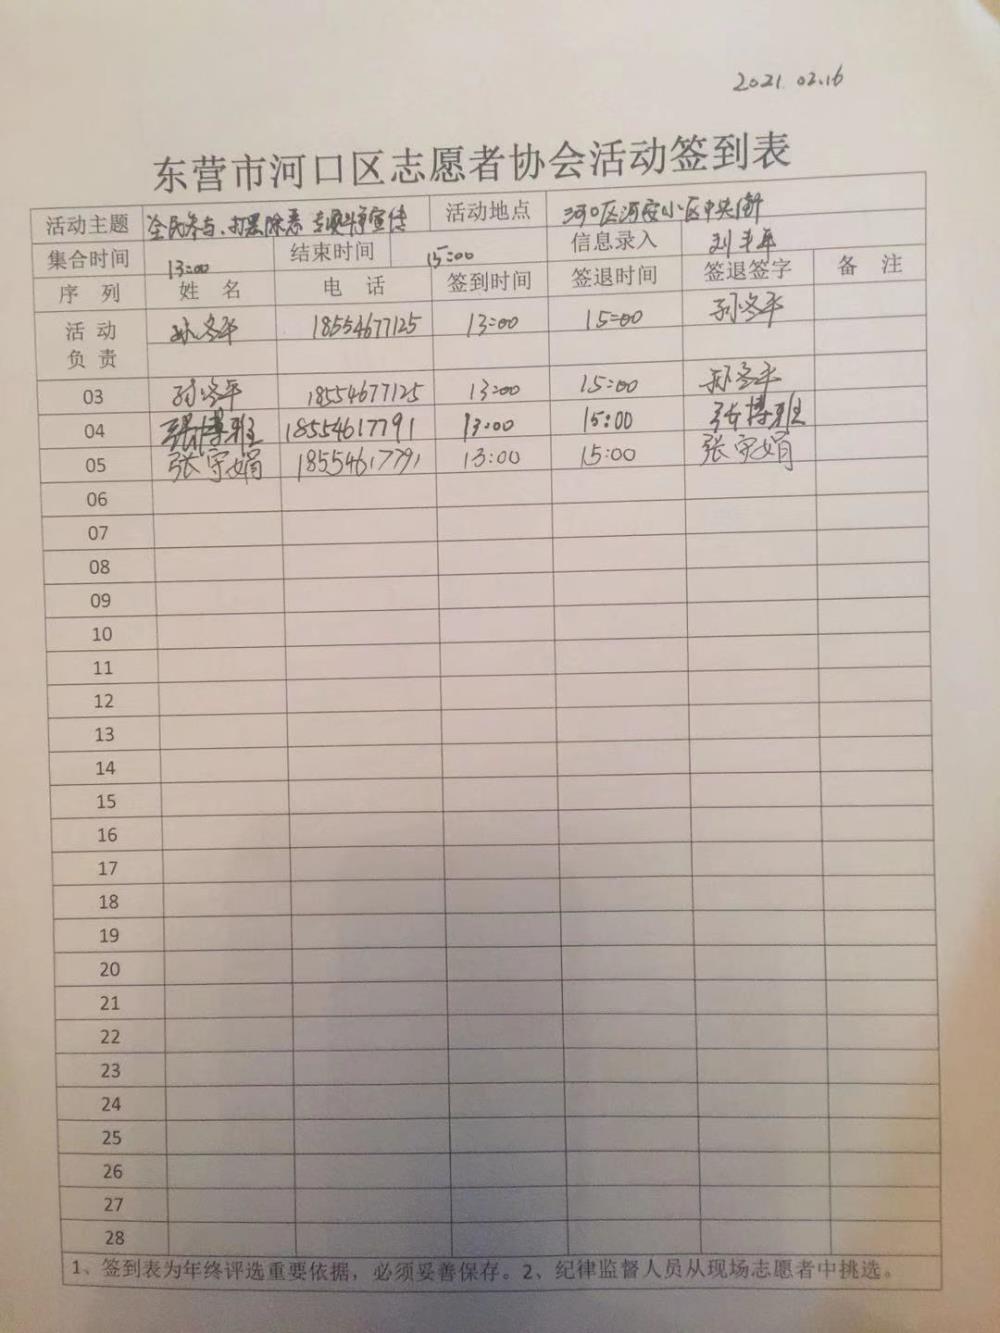 2021.02.16
东营市河口区志愿者协会活动签到表
活动主题 全民参与、打黑除恶 专项斗争宣传 活动地点 河口区河安小区中央街
集合时间 13:00 结束时间 15:00 信息录入
序 列 姓 名 电 话 签到时间 签退时间 签退签字 备 注
活 动 负 责 孙冬平 18554677125 13:00 15:00 孙冬平
03 孙冬平 18554677125 13:00 15:00 孙冬平
04 张博雅 18554617791 13:00 15:00 张博雅
05 张守娟 18554617791 13:00 15:00 张守娟
06
07
08
09
10
11
12
13
14
15
16
17
18
19
20
21
22
23
24
25
26
27
28
1、签到表为年终评选重要依据，必须妥善保存。2、纪律监督人员从现场志愿者中挑选。